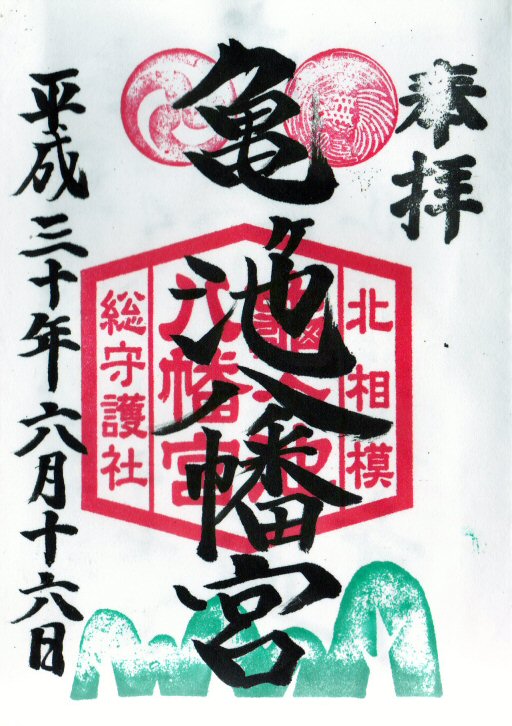 奉拝
亀ヶ池八幡宮
平成三十年六月十六日
北相模
総守護社
八幡宮